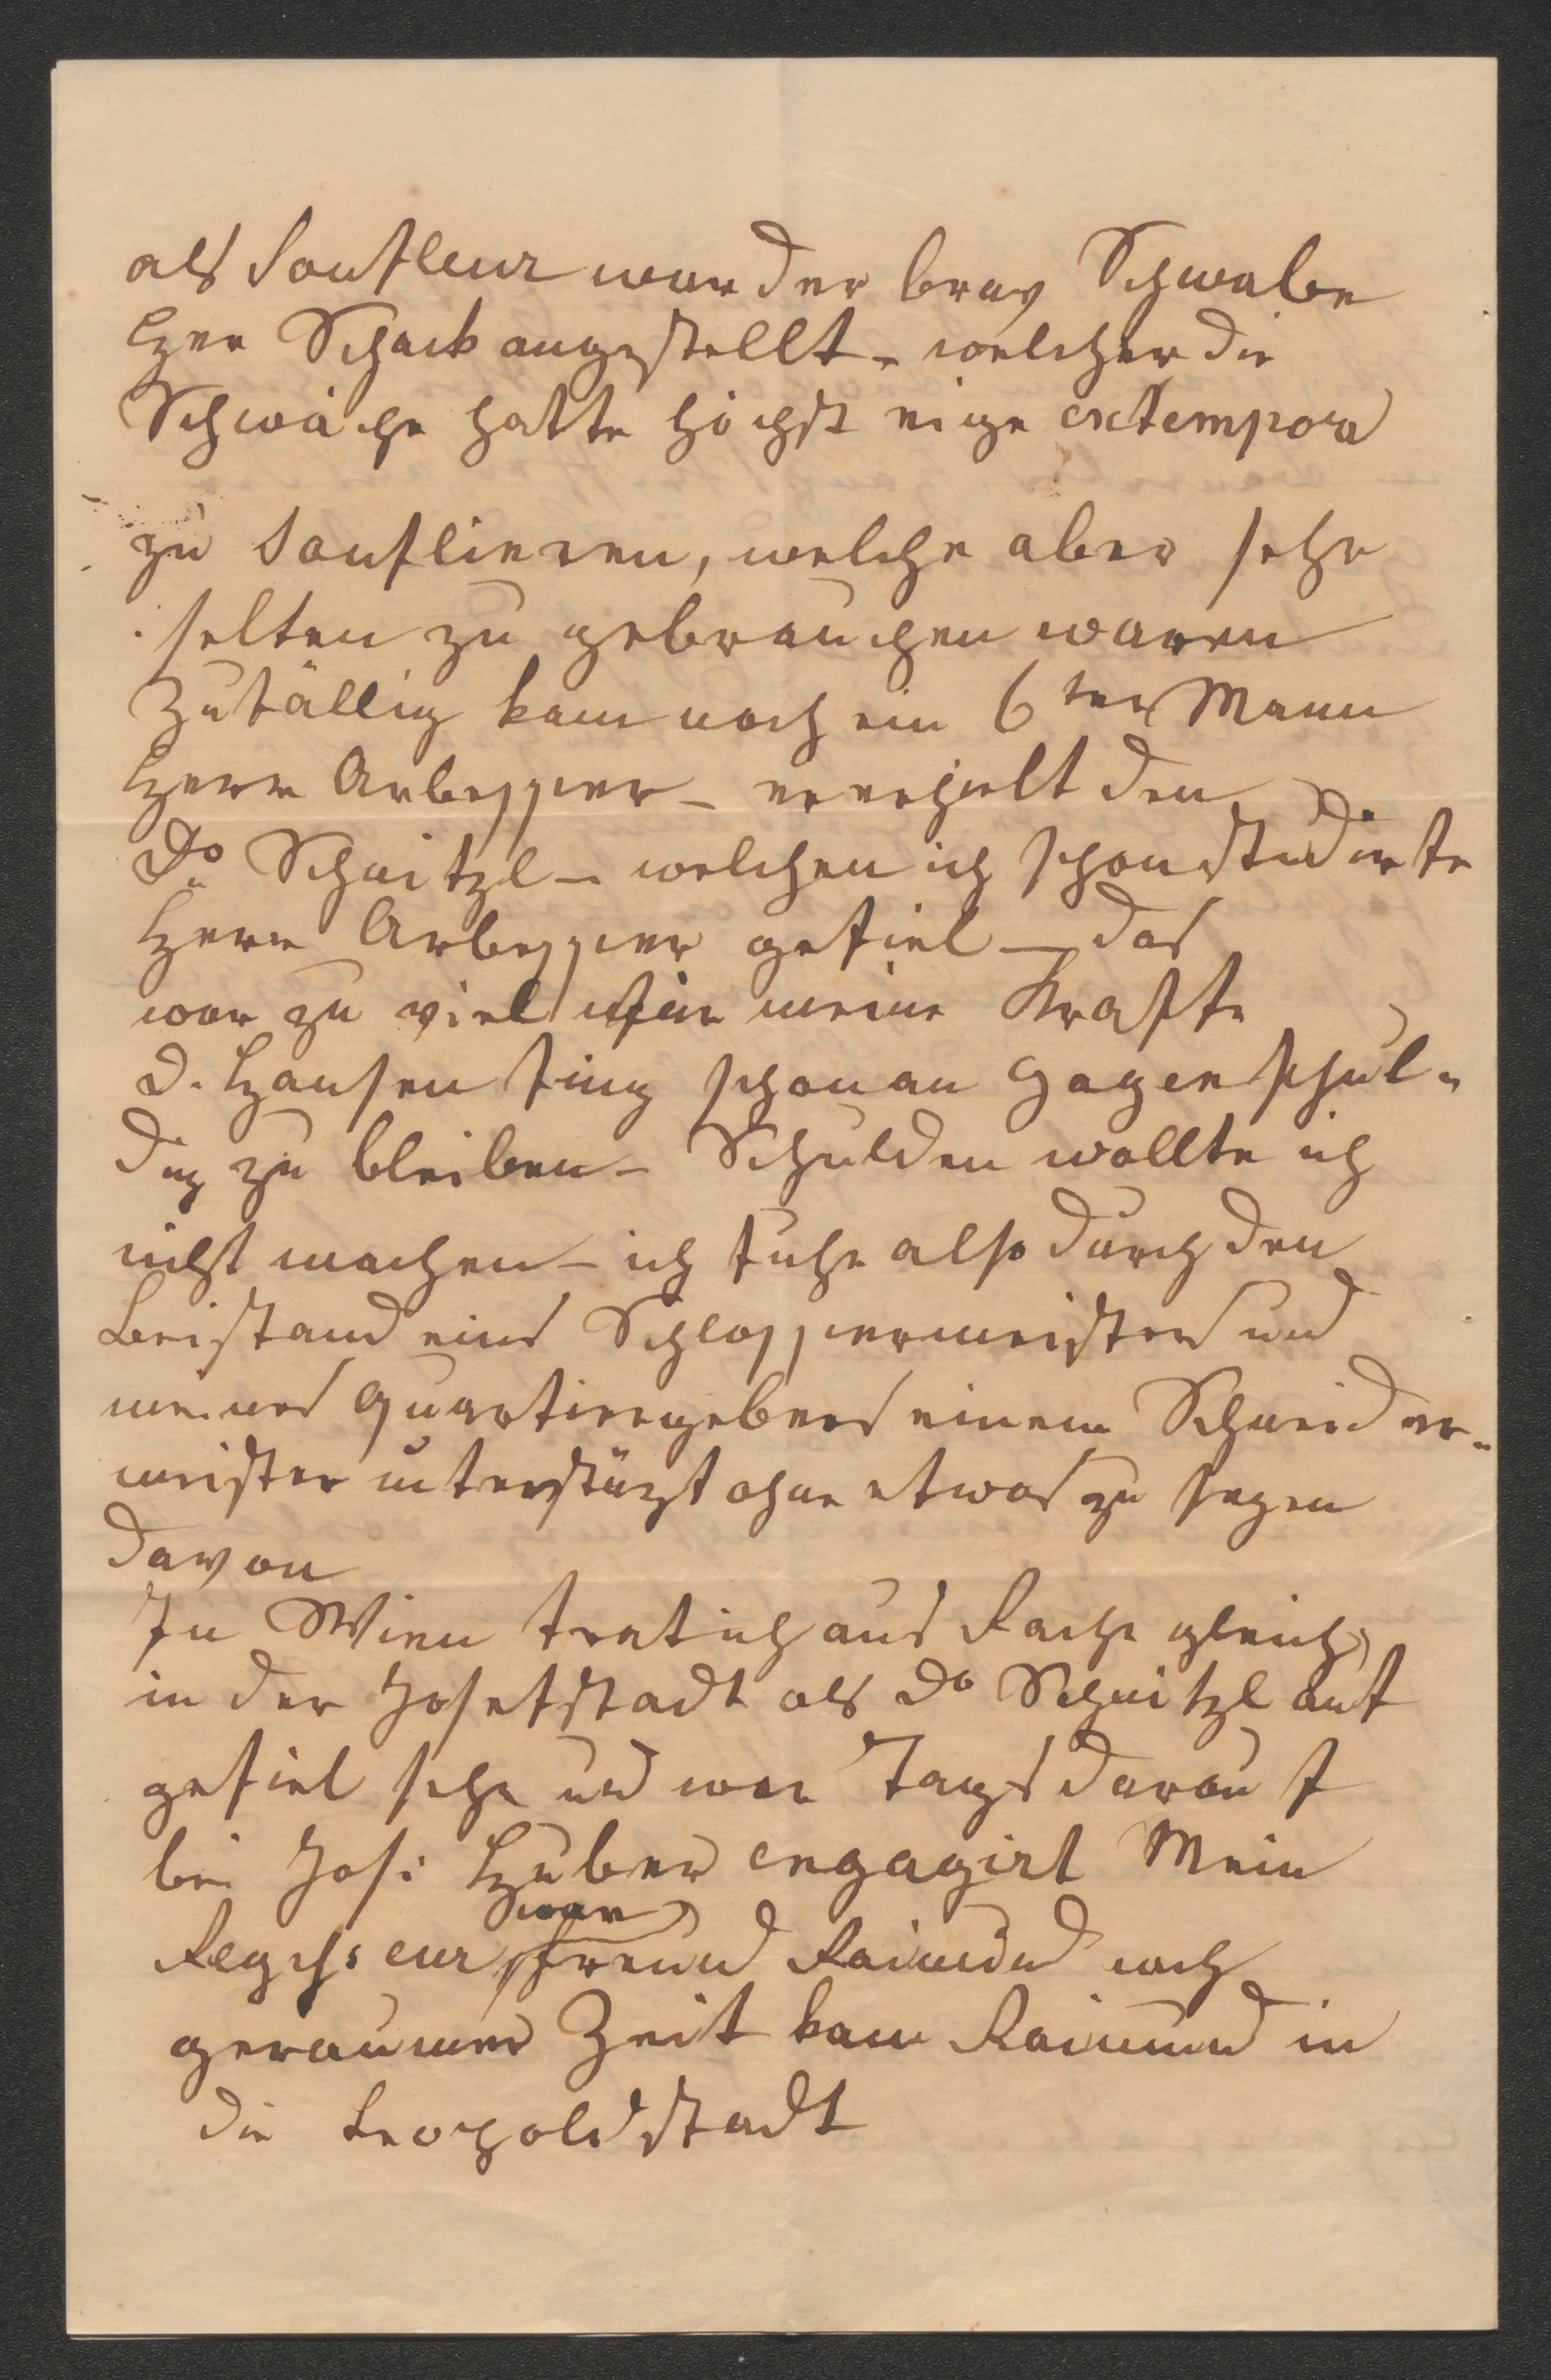 als Soufleur war der brav Schwabe
Herr Schack angestellt – welcher die
Schwäche hatte höchst eige extempora
zu souflieren, welche aber sehr
selten zu gebrauchen waren
Zufällig kam noch ein 6ter Mann
Herr Arbesser – er erhielt den
Da Schnitzl – welchen ich schon studirte
Herr Arbesser gefiel – das
war zu viel für meine Krafte
d. Hansen fing schon an Gagen schul-
dig zu bleiben – Schulden wollte ich
nicht machen – ich fuhr also durch den
Beistand eines Schlossermeisters und
meines Quartiergebers einem Schneider-
meister unterstüzt ohne etwas zu sagen
davon
In Wien trat ich aus Rache gleich
in der Josefstadt als Da Schnitzl auf
gefiel sehr und war Tags darauf
bei Jos: Huber engagirt Mein
war
Regisseur Freund Raimund nach
geraumer Zeit kam Raimund in
die Leopoldstadt